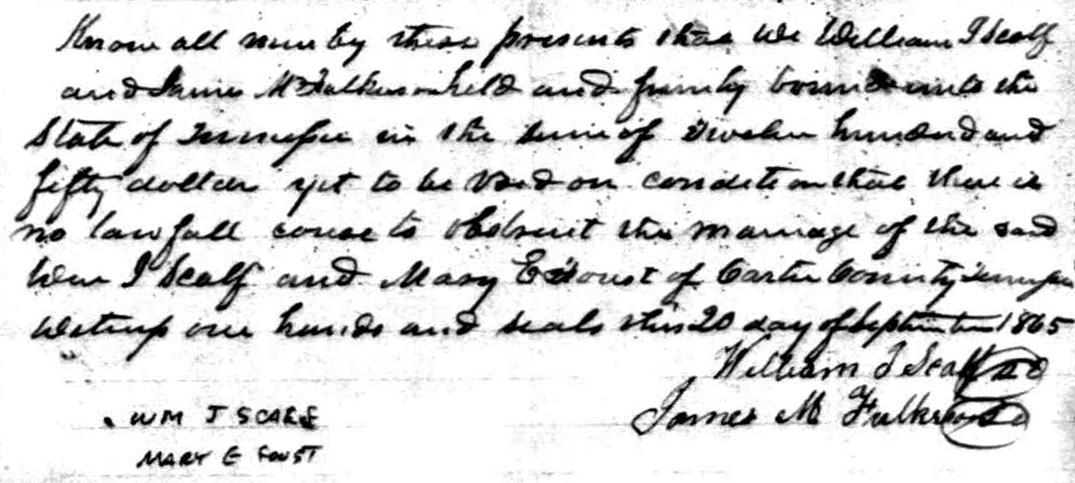 Know all men by these presents that We William J Scalf
and James M Fulkerson held and firmly bound unto the
State of Tennessee in the sum of Twelve hundred and
fifty dollars yet to be Void on condition that there is
no lawfull cause to obstruct the marriage of the said
Wm J Scalf and Mary E Foust of Carter County Tennessee
Witness our hands and seals this 20 day of September 1865
William J Scalf
James M Fulkerson
WM J SCALF
MARY E FOUST